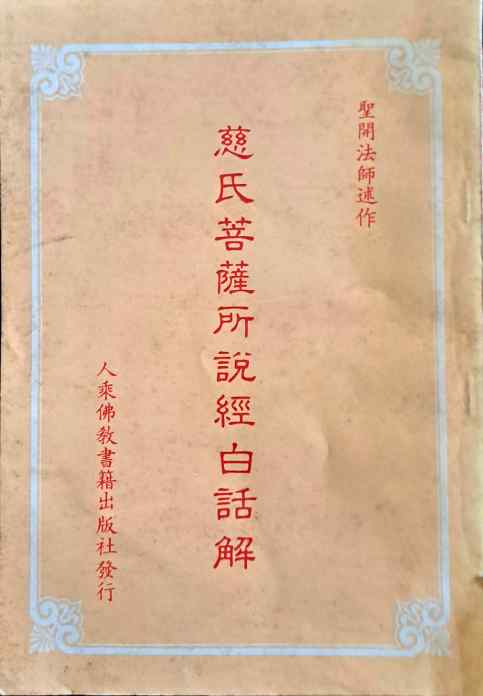 聖開法師述作
慈氏菩薩所說經白話解
人乘佛教書籍出版社發行